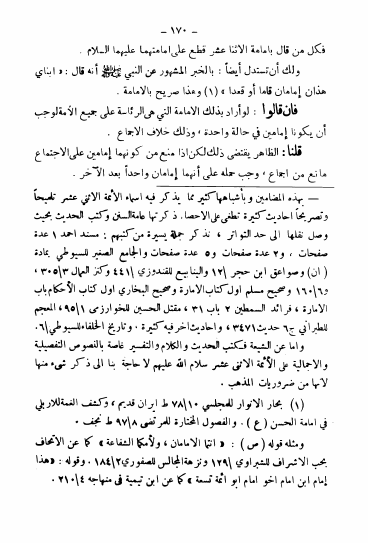 - ١٧٠ -
فكل من قال بامامة الاثنا عشر قطع على امامتهما عليهما السلام .
ولك أن تستدل أيضاً : بالخبر المشهور عن النبي ﷺ أنه قال : « ابناي
هذان إمامان قاما أو قعدا » (١) وهذا صريح بالامامة .
فان قالوا : لو أراد بذلك الامامة التي هي الرئاسة على جميع الأمة لوجب
أن يكونا إمامين في حالة واحدة ، وذلك خلاف الاجماع .
قلنا : الظاهر يقتضي ذلك لكن اذا منع من كونهما إمامين على الاجتماع
مانع من اجماع ، وجب حمله على أنهما إمامان واحداً بعد الآخر .
— بهذه المضامين وأشباهها كثير مما يذكر فيه اسماء الأئمة الاثنى عشر تلخيحاً
وتصريحاً أحاديث كثيرة تطغى على الاحصاء . ذكرتها عامة السنن وكتب الحديث بحيث
وصل نقلها الى حد التواتر ، نذكر جملة يسيرة من كتبهم : مسند احمد ١ عدة
صفحات ، و ٢ عدة صفحات و ٥ عدة صفحات والجامع الصغير للسيوطي بمادة
( ان ) وصواعق ابن حجر ١٢| والينابيع للقندوزي |٤٤١ وكنز العمال ٣|٣٠٥ ،
و ٦|١٦٠ وصحيح مسلم اول كتاب الامارة وصحيح البخاري اول كتاب الأحكام باب
الامارة ، فرائد السمطين ٢ باب ٣١ ، مقتل الحسين للخوارزمي ١|٩٥ ، المعجم
للطبراني ج ٦ حديث |٣٤٧١ ، واحاديث اخر فيه كثيرة . وتاريخ الخلفاء للسيوطي |٦ .
واما عن الشيعة فكتب الحديث والكلام والتفسير غاصة بالنصوص التفصيلية
والاجمالية على الأئمة الاثنى عشر سلام الله عليهم لا حاجة بنا الى ذكر شيء منها
لانها من ضروريات المذهب .
(١) بحار الانوار للمجلسي ١٠|٧٨ ط ايران قديم ، وكشف الغمة للاربلي
في امامة الحسن ( ع ) . والفصول المختارة للمرتضى ٨|٩٧ ط نجف .
ومثله قوله ( ص ) : « انتما الامامان ، ولأمكما الشفاعة » كما عن الاتحاف
بحب الاشراف للشبراوي |١٢٩ ونزهة المجالس للصفوري ٢|١٨٤ . وقوله : « هذا
إمام ابن امام اخو امام ابو ائمة تسعة » كما عن ابن تيمية في منهاجه ٤|٢١٠ .